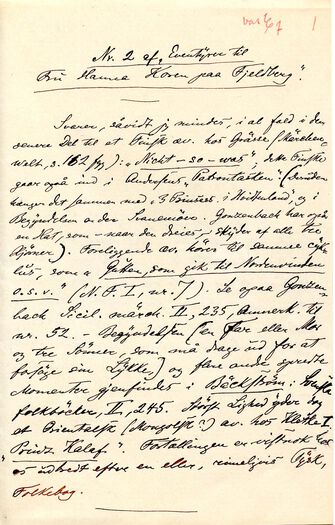 1
Nr. 2 af „Eventyrer til
Fru Hanna Koren paa Fjeldberg".
Svarer, såvidt jeg mindes, i al fald i den
senere Del til et Finsk æv. hos Grässe (Märchen-
welt, s. 162 fg): „Nicht-so-was"; dette Finske
gaar også ind i Andersens „Patrontasken" (desuden
hænger det sammen med „3 Prinser i
Begyndelsen er der Gonzenbach har også
en Kat, som naar den af alle tre
). Foreliggende æv. hører til samme Cyk-
lus, som „Gutten, som gik til Nordenvinden
o.s.v." (N. F. I, nr. 7). Se også Gonzen-
bach Sicil. märch. II, 235, Anmerk. til
nr. 52. - Begyndelsen (en Far eller Mor
og tre Sønner, som må drage ud for at
forsøge sin Lykke) og flere andre spredte
Momenter gjenfindes i Bäckström: Svenska
folkböcker, I, 245. Størst Lighed yder dog
et Orientalsk (Mongolsk?) æv. hos Kletke I
„Prinz Kalaf". Fortællingen er vistnok hos
os udbredt efter en eller, rimeligvis Tysk,
Folkebog.